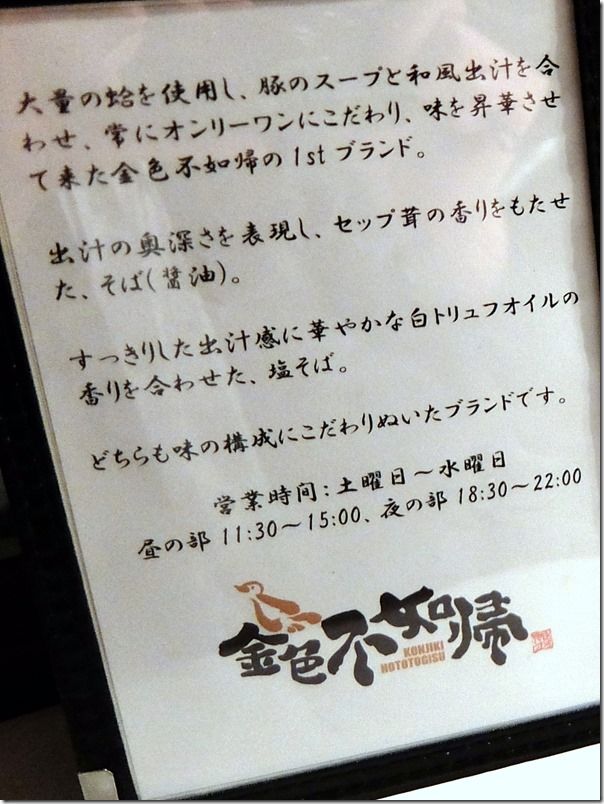 大量の蛤を使用し、豚のスープと和風出汁を合
わせ、常にオンリーワンにこだわり、味を昇華させ
て来た金色不如帰の1stブランド。
出汁の奥深さを表現し、セップ茸の香りをもたせ
た、そば(醤油)。
すっきりした出汁感に華やかな白トリュフオイルの
香りを合わせた、塩そば。
どちらも味の構成にこだわりぬいたブランドです。
営業時間：土曜日～水曜日
昼の部 11:30～15:00、夜の部 18:30～22:00
金色不如帰
KONJIKI
HOTOTOGISU